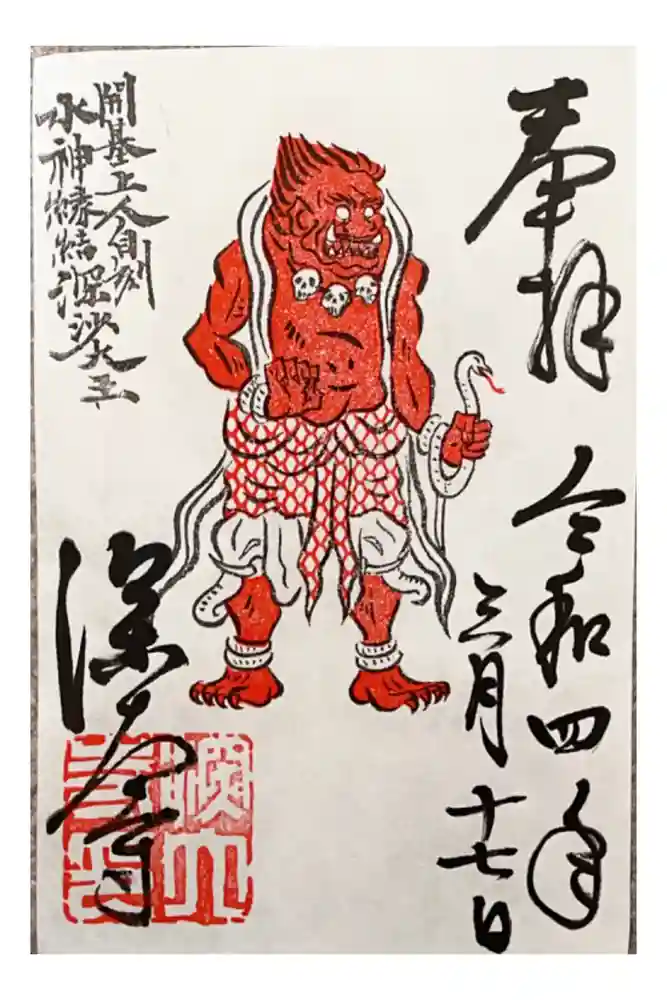 奉拝
令和四年
三月
十七日
開基上人自刻
水神縁結深沙大王
深大寺